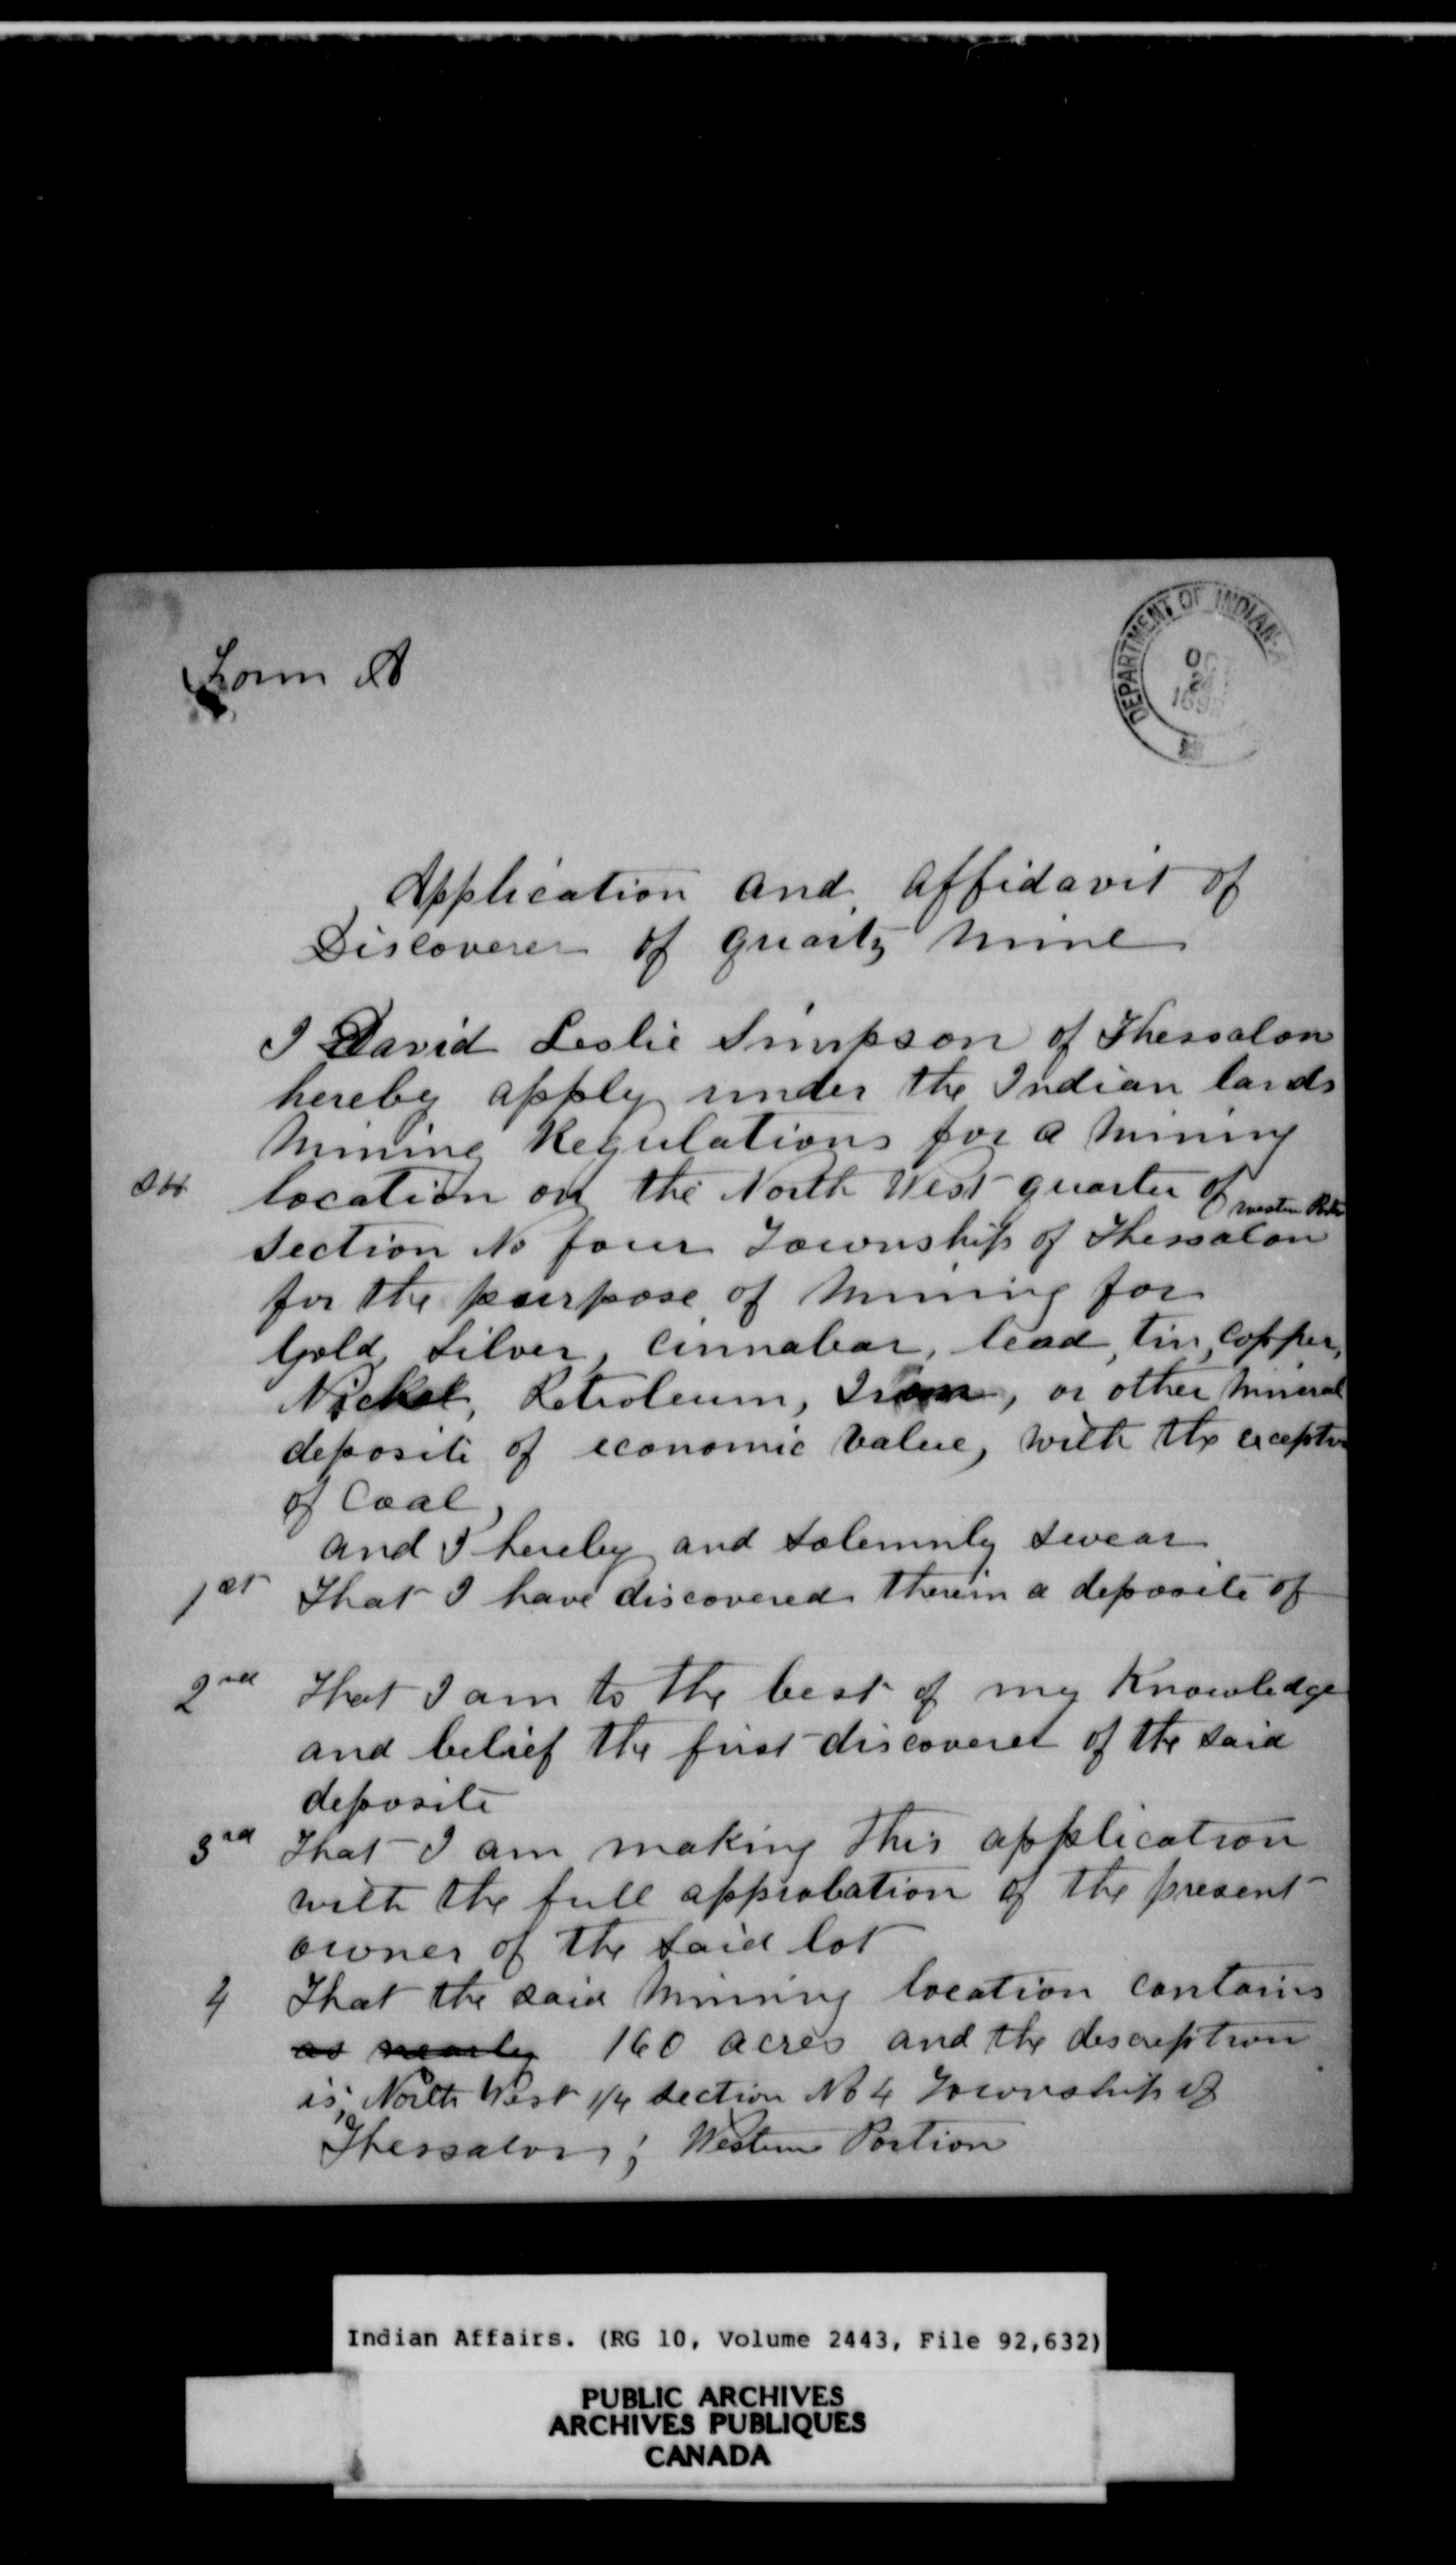 Form A
DEPARTMENT OF INDIAN A
OCT
189
Application and Affidavit of
Discoverer of quartz Mine
I David Leslie Simpson of Thessalon
hereby apply under the Indian lands
Mining Regulations for a Mining
location on the North West quarter of
Western Portn
Section No four Township of Thessalon
for the purpose of Mining for
Gold, Silver, Cinnabar, lead, tin, Copper,
Nickel, Petroleum, Iron, or other Mineral
deposite of economic Value, with the exception
of Coal,
and I hereby and Solemnly swear
1st That I have discovered therein a deposite of
2nd That I am to the best of my Knowledge
and belief the first discoverer of the said
deposite
3rd That I am making this application
with the full approbation of the present
owner of the said lot
4 That the said Mining location contains
as nearly 160 acres and the description
is; North West 1/4 Section No 4 Township of
Thessalon; Western Portion
Indian Affairs. (RG 10, Volume 2443, File 92,632)
PUBLIC ARCHIVES
ARCHIVES PUBLIQUES
CANADA